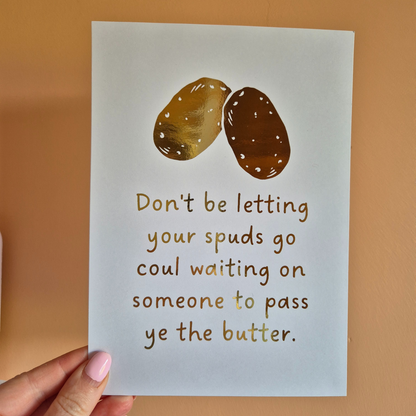 Don't be letting
your spuds go
coul waiting on
someone to pass
ye the butter.